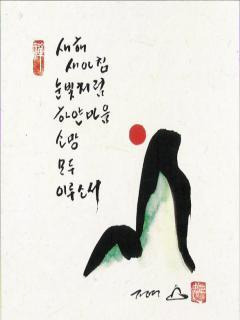 새해
새아침
눈빛처럼
하얀마음
소망
모두
이루소서